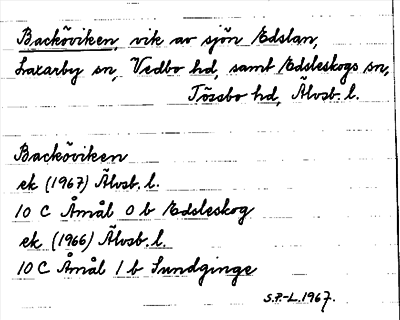 Backöviken, vik av sjön Edslan,
Laxarby sn, Vedbo hd, samt Edsleskogs sn,
Tössbo hd, Älvsb. l.
Backöviken
ek (1967) Älvsb. l.
10 C Åmål 0 b Edsleskog
ek (1966) Älvsb. l.
10 C Åmål 1 b Sundginge
S.P.-L. 1967.